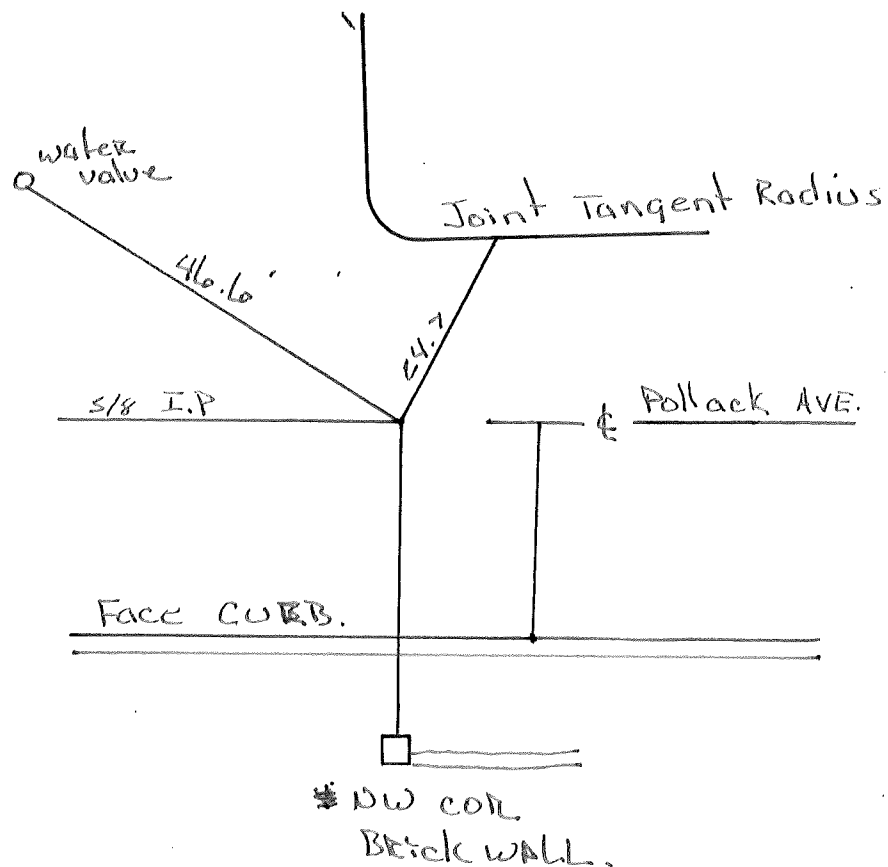 water
value
Joint Tangent Radius
46.6'
5/8 I.P
℄ Pollack AVE.
Face CURB.
NW COR
BRICK WALL.